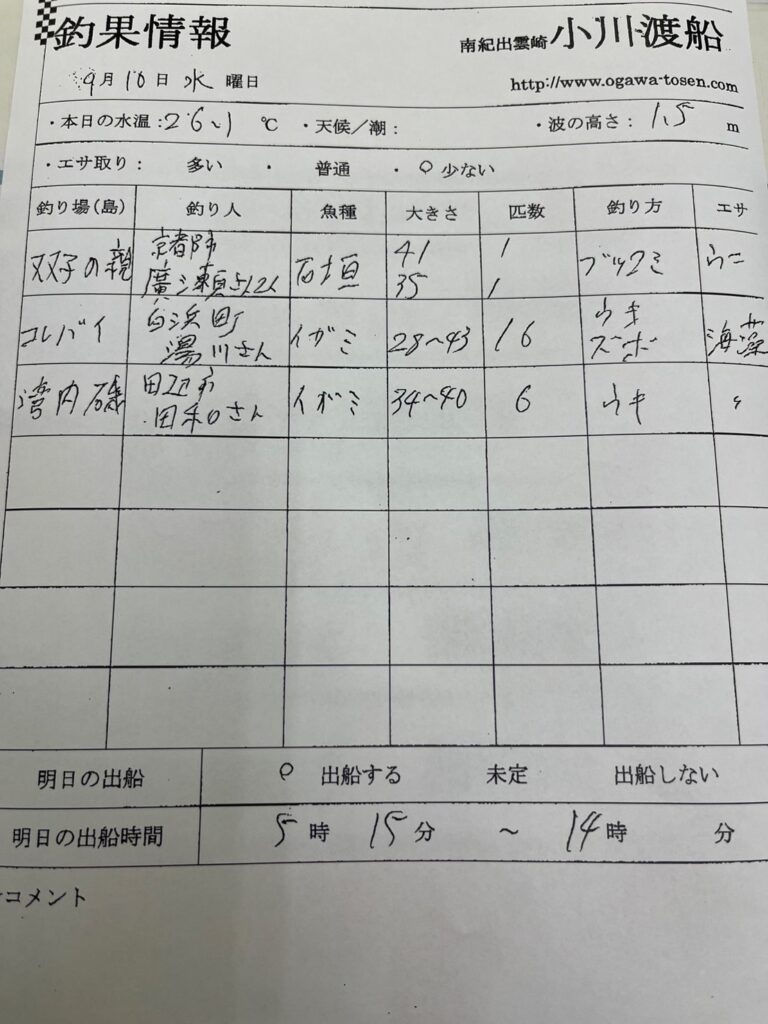 釣果情報 南紀出雲崎 小川渡船
9月10日 水 曜日 http://www.ogawa-tosen.com
・本日の水温:26.1 ℃ ・天候/潮: ・波の高さ: 1.5 m
・エサ取り: 多い ・ 普通 ・ ○ 少ない
釣り場(島) 釣り人 魚種 大きさ 匹数 釣り方 エサ
双子の親 京都市 石垣 41 1 ブッコミ ウニ
廣瀬さん2人 35 1
コレバイ 白浜町 イガミ 28~43 16 ウキ 海藻
湯川さん ズボ
湾内磯 田辺市 イガミ 34~40 6 ウキ 〃
田和さん
明日の出船 ○ 出船する 未定 出船しない
明日の出船時間 5時 15分 ~ 14時 分
コメント